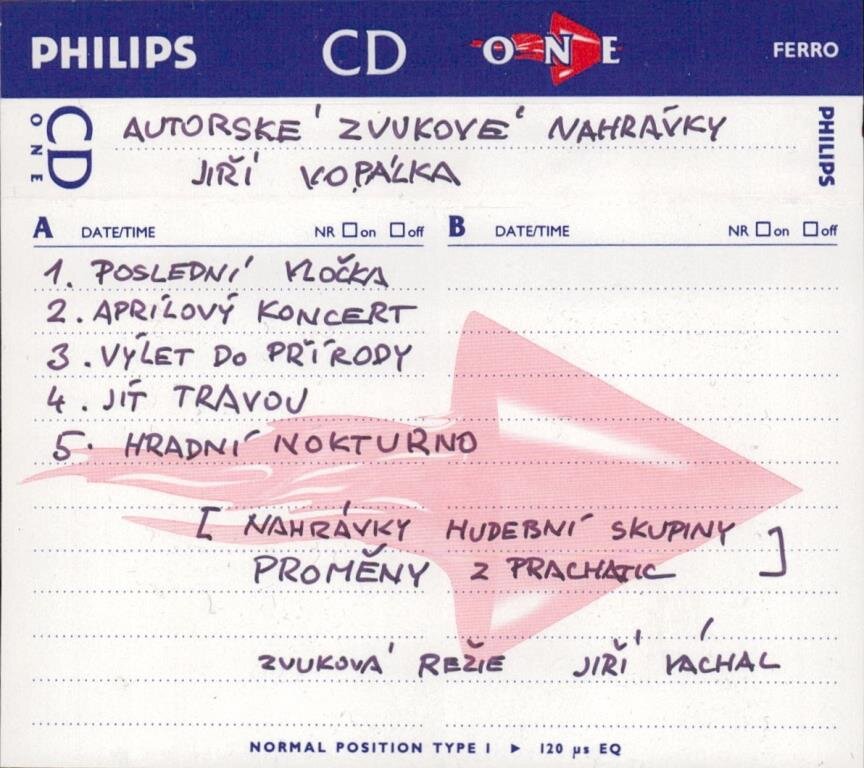 PHILIPS CD ONE FERRO
CD ONE
AUTORSKÉ ZVUKOVÉ NAHRÁVKY
PHILIPS
JIŘÍ VOPÁLKA
A DATE/TIME NR on off
B DATE/TIME NR on off
1. POSLEDNÍ VLOČKA
2. APRÍLOVÝ KONCERT
3. VÝLET DO PŘÍRODY
4. JÍT TRAVOU
5. HRADNÍ NOKTURNO
[ NAHRÁVKY HUDEBNÍ SKUPINY
PROMĚNY Z PRACHATIC ]
ZVUKOVÁ REŽIE JIŘÍ VÁCHAL
NORMAL POSITION TYPE I ▶ 120 µs EQ